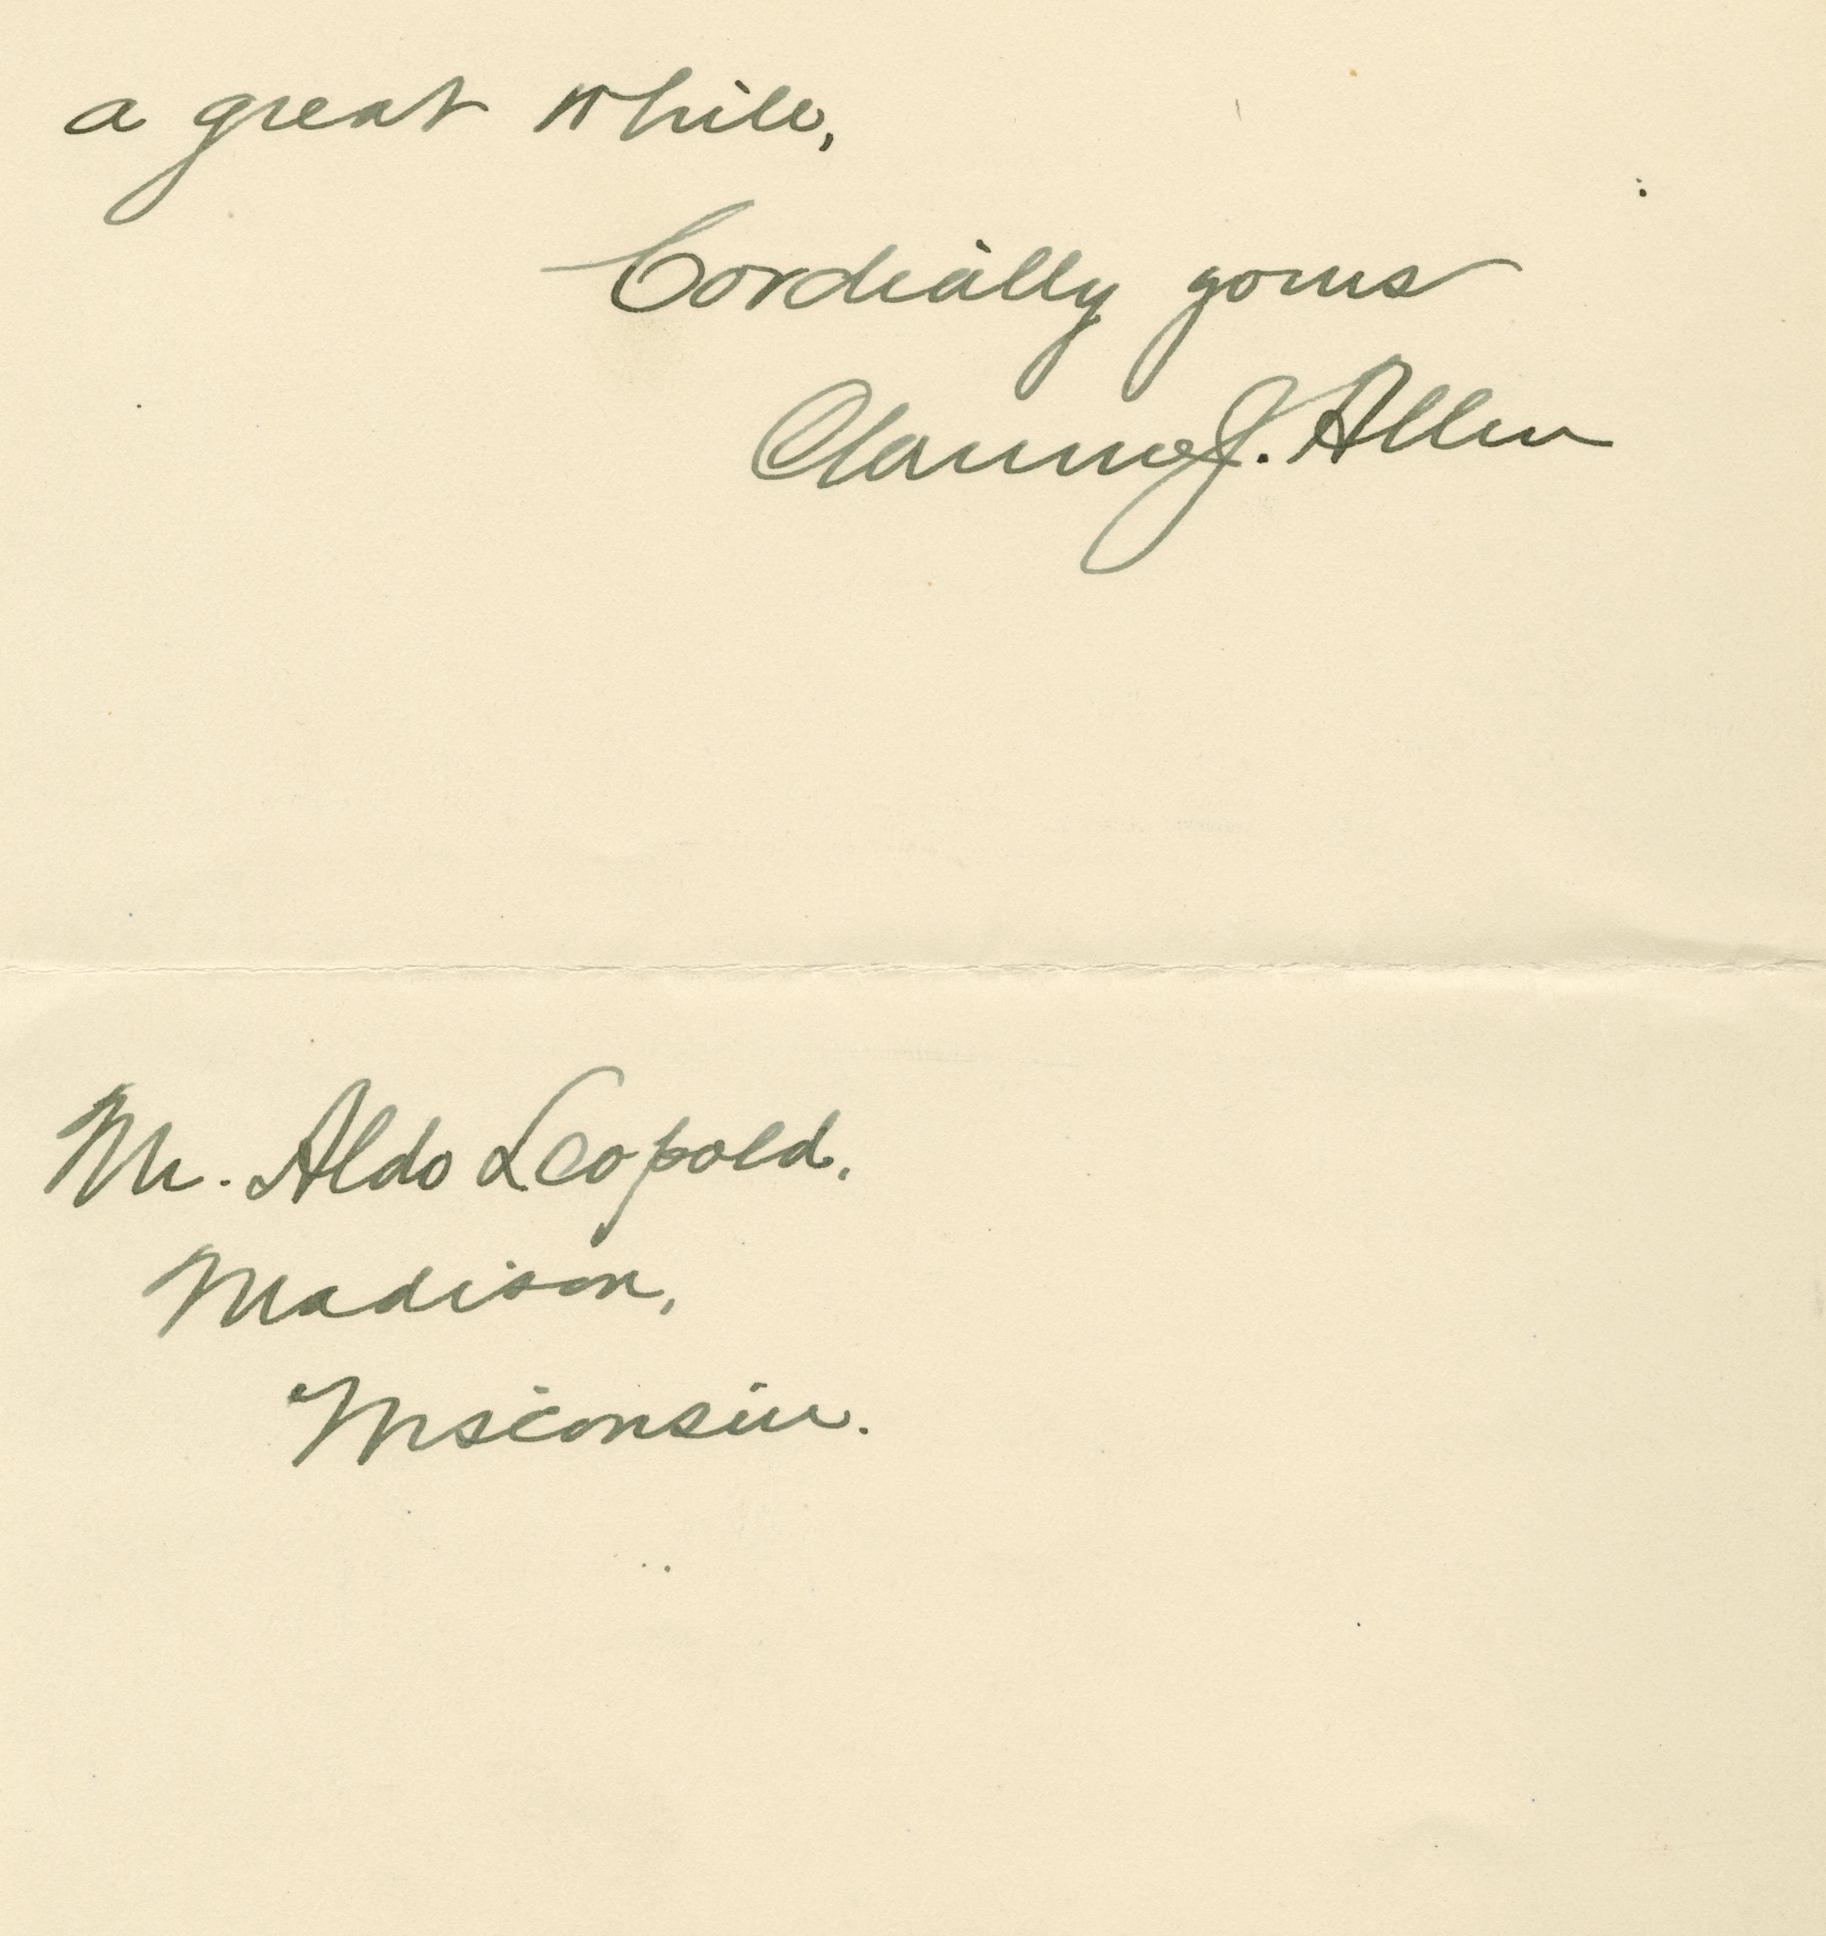 a great while,
Cordially yours
Clarence J. Allen
Mr. Aldo Leopold,
Madison,
Wisconsin.